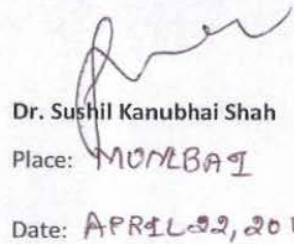 Dr. Sushil Kanubhai Shah
Place: MUMBAI
Date: APRIL 22, 201